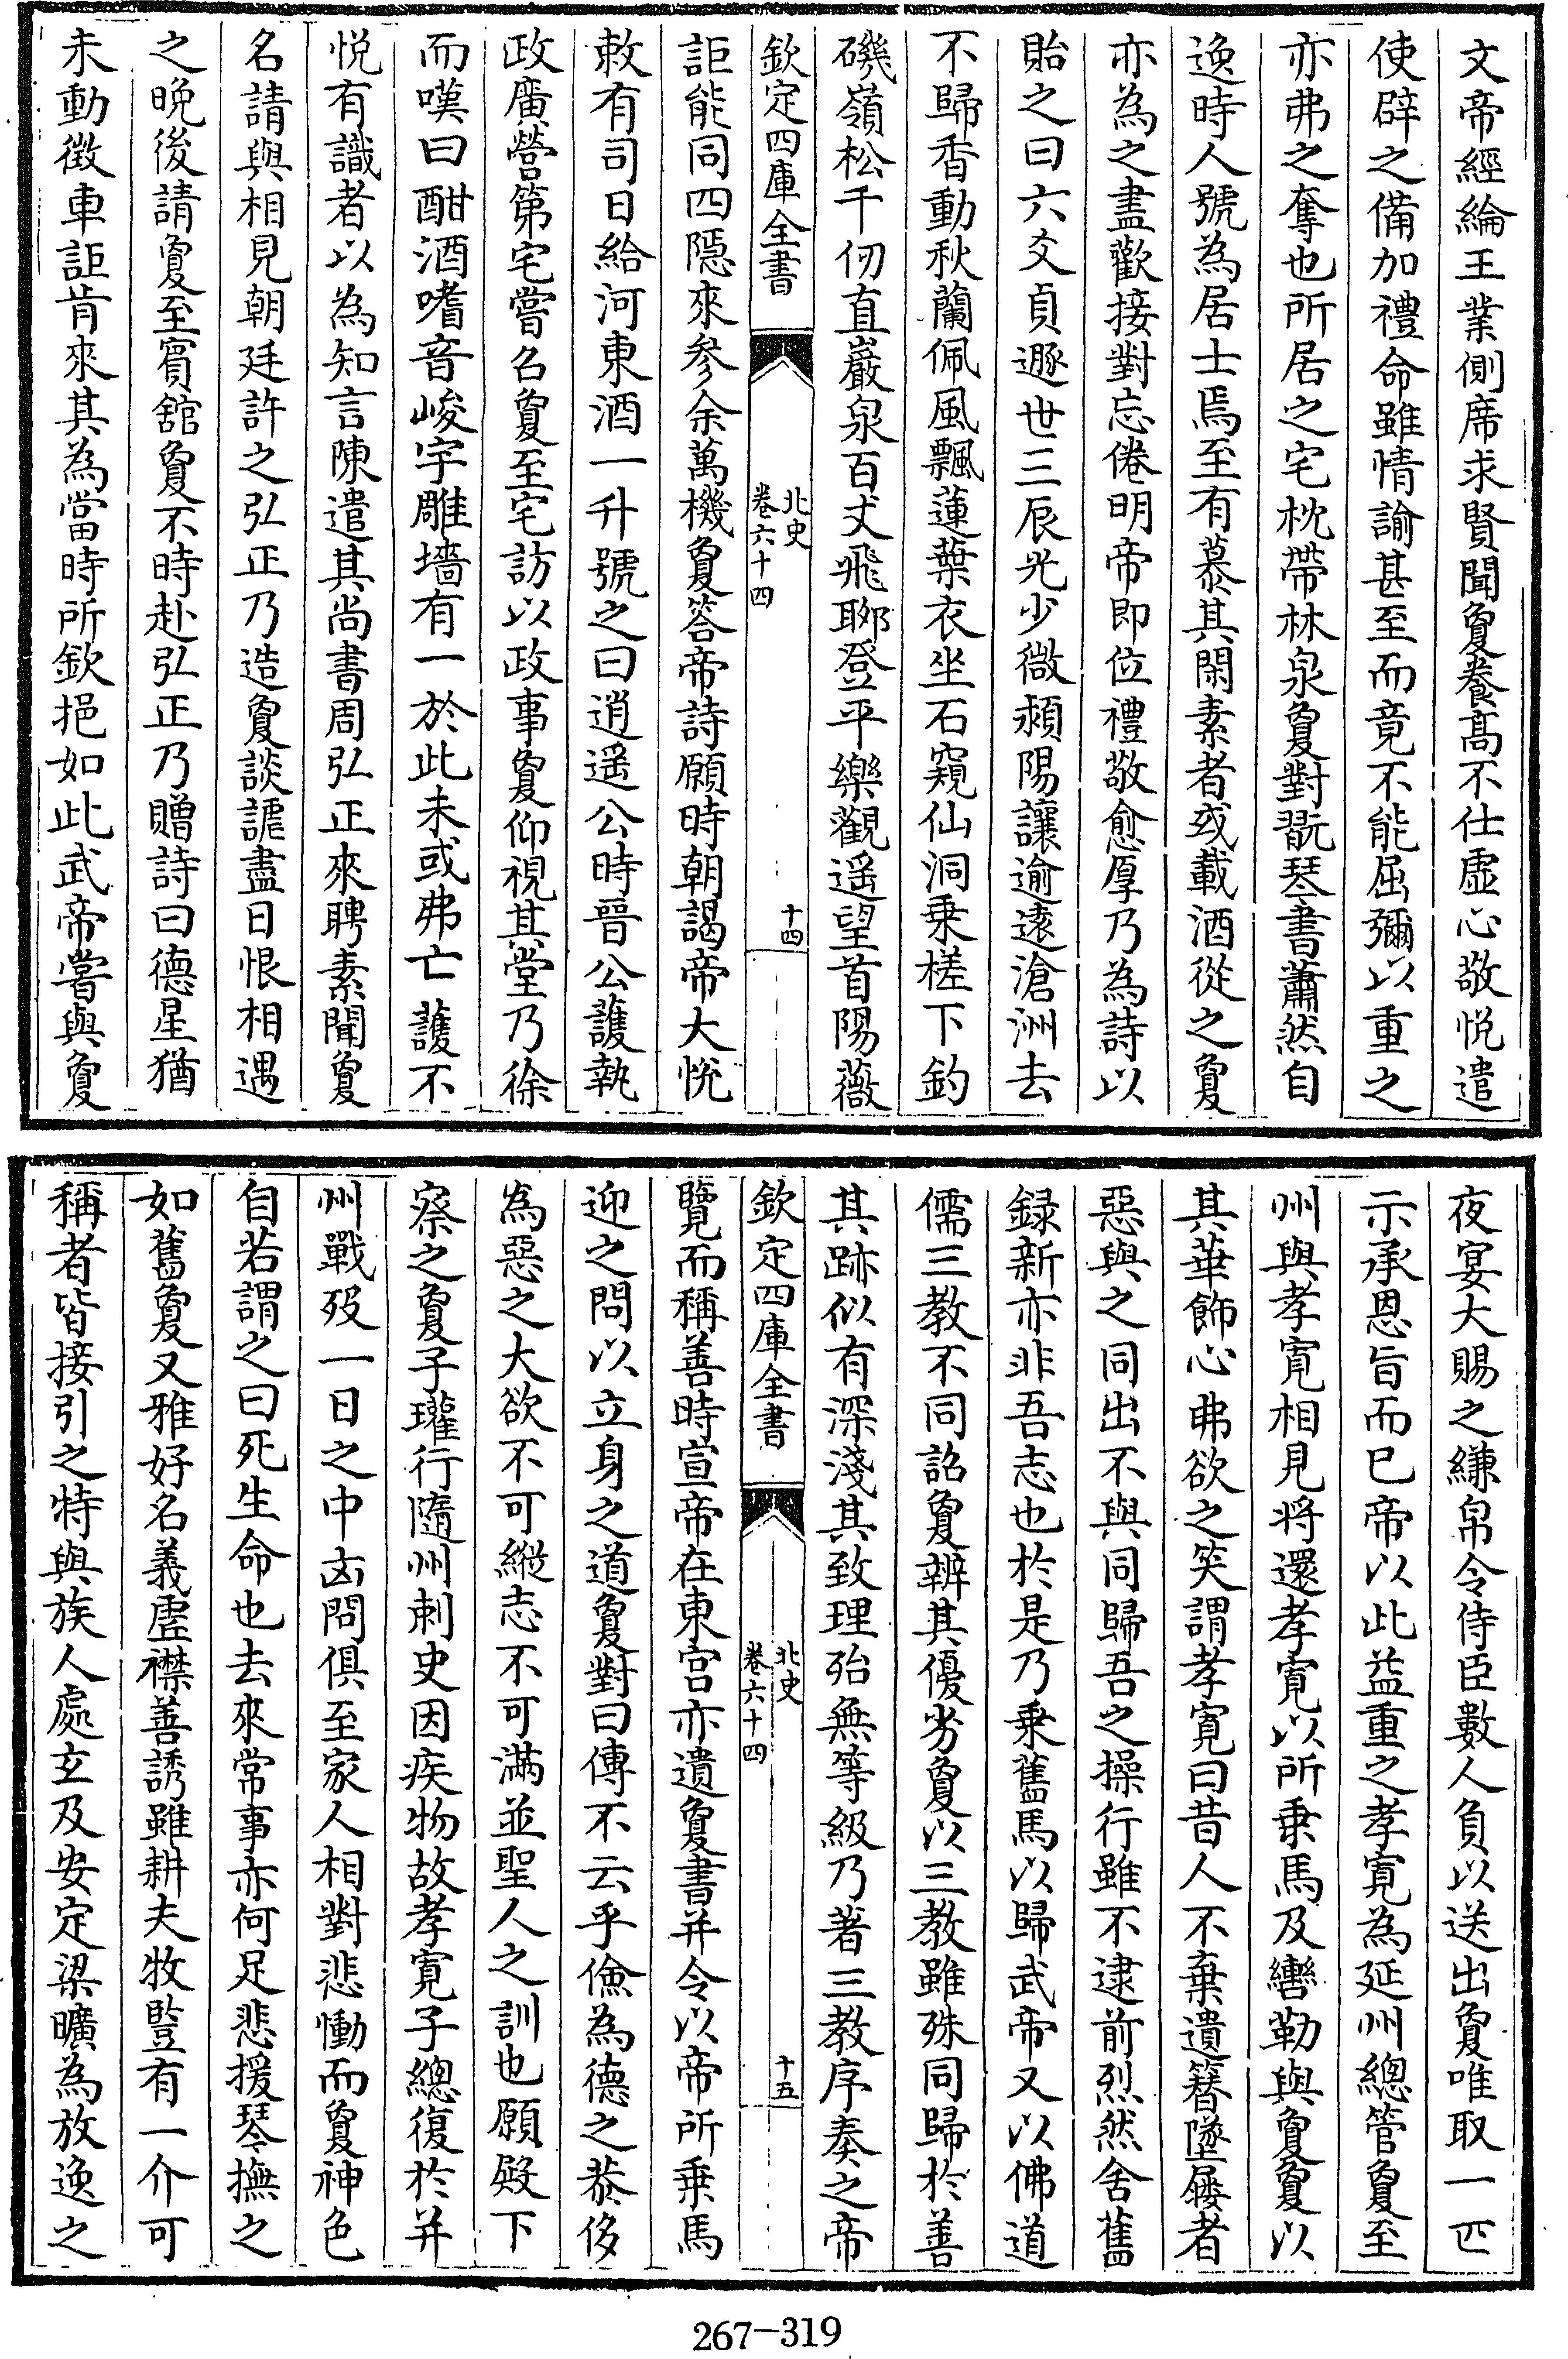 文帝經綸王業側席求賢聞敻養髙不仕虚心敬悦遣
使辟之備加禮命雖情諭甚至而竟不能屈彌以重之
亦弗之奪也所居之宅枕帶林泉敻對翫琴書蕭然自
逸時人號為居士焉至有慕其閑素者或載酒從之敻
亦為之盡歡接對忘倦明帝即位禮敬愈厚乃為詩以
貽之曰六爻貞遯世三辰光少微潁陽讓逾逺滄洲去
不歸香動秋蘭佩風飄蓮葉衣坐石窺仙洞乗槎下釣
磯嶺松千仞直巖泉百丈飛聊登平樂觀遥望首陽薇
欽定四庫全書
北史
卷六十四
十四
詎能同四隠來參余萬機敻答帝詩願時朝謁帝大悦
敕有司日給河東酒一升號之曰逍遥公時晉公護執
政廣營第宅嘗召敻至宅訪以政事敻仰視其堂乃徐
而嘆曰酣酒嗜音峻宇雕墻有一於此未或弗亡護不
悦有識者以為知言陳遣其尚書周弘正來聘素聞敻
名請與相見朝廷許之弘正乃造敻談謔盡日恨相遇
之晩後請敻至賓舘敻不時赴弘正乃贈詩曰德星猶
未動徴車詎肯來其為當時所欽挹如此武帝嘗與敻
夜宴大賜之縑帛令侍臣數人負以送出敻唯取一匹
示承恩旨而已帝以此益重之孝寛為延州總管敻至
州與孝寛相見将還孝寛以所乗馬及轡勒與敻敻以
其華飾心弗欲之笑謂孝寛曰昔人不棄遺簮墜屨者
惡與之同出不與同歸吾之操行雖不逮前烈然舍舊
録新亦非吾志也於是乃乗舊馬以歸武帝又以佛道
儒三教不同詔敻辨其優劣敻以三教雖殊同歸於善
其跡似有深淺其致理殆無等級乃著三教序奏之帝
欽定四庫全書
北史
卷六十四
十五
覽而稱善時宣帝在東宫亦遺敻書并令以帝所乗馬
迎之問以立身之道敻對曰傳不云乎儉為德之恭侈
為惡之大欲不可縱志不可滿並聖人之訓也願殿下
察之敻子瓘行隨州刺史因疾物故孝寛子總復於并
州戰殁一日之中凶問俱至家人相對悲慟而敻神色
自若謂之曰死生命也去來常事亦何足悲援琴撫之
如舊敻又雅好名義虚襟善誘雖耕夫牧豎有一介可
稱者皆接引之特與族人處玄及安定梁曠為放逸之
267-319